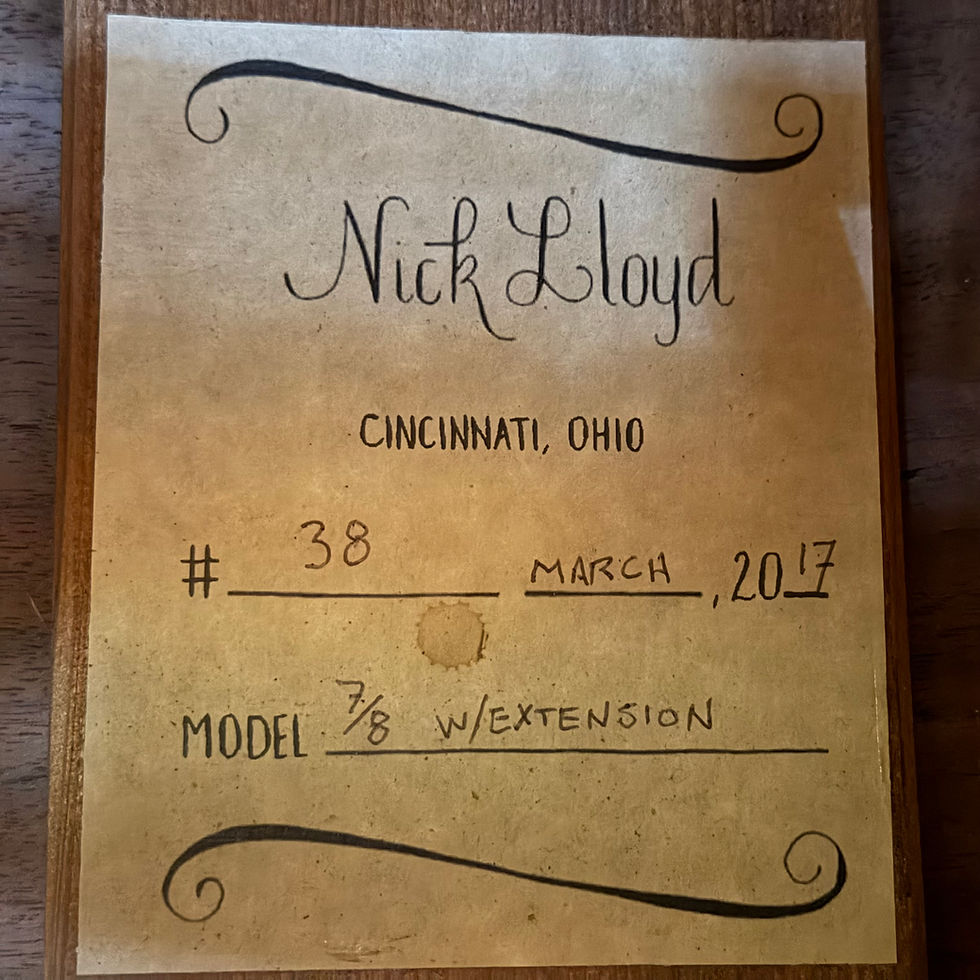 Nick Lloyd
CINCINNATI, OHIO
# 38 MARCH, 2017
MODEL 7/8 W/EXTENSION